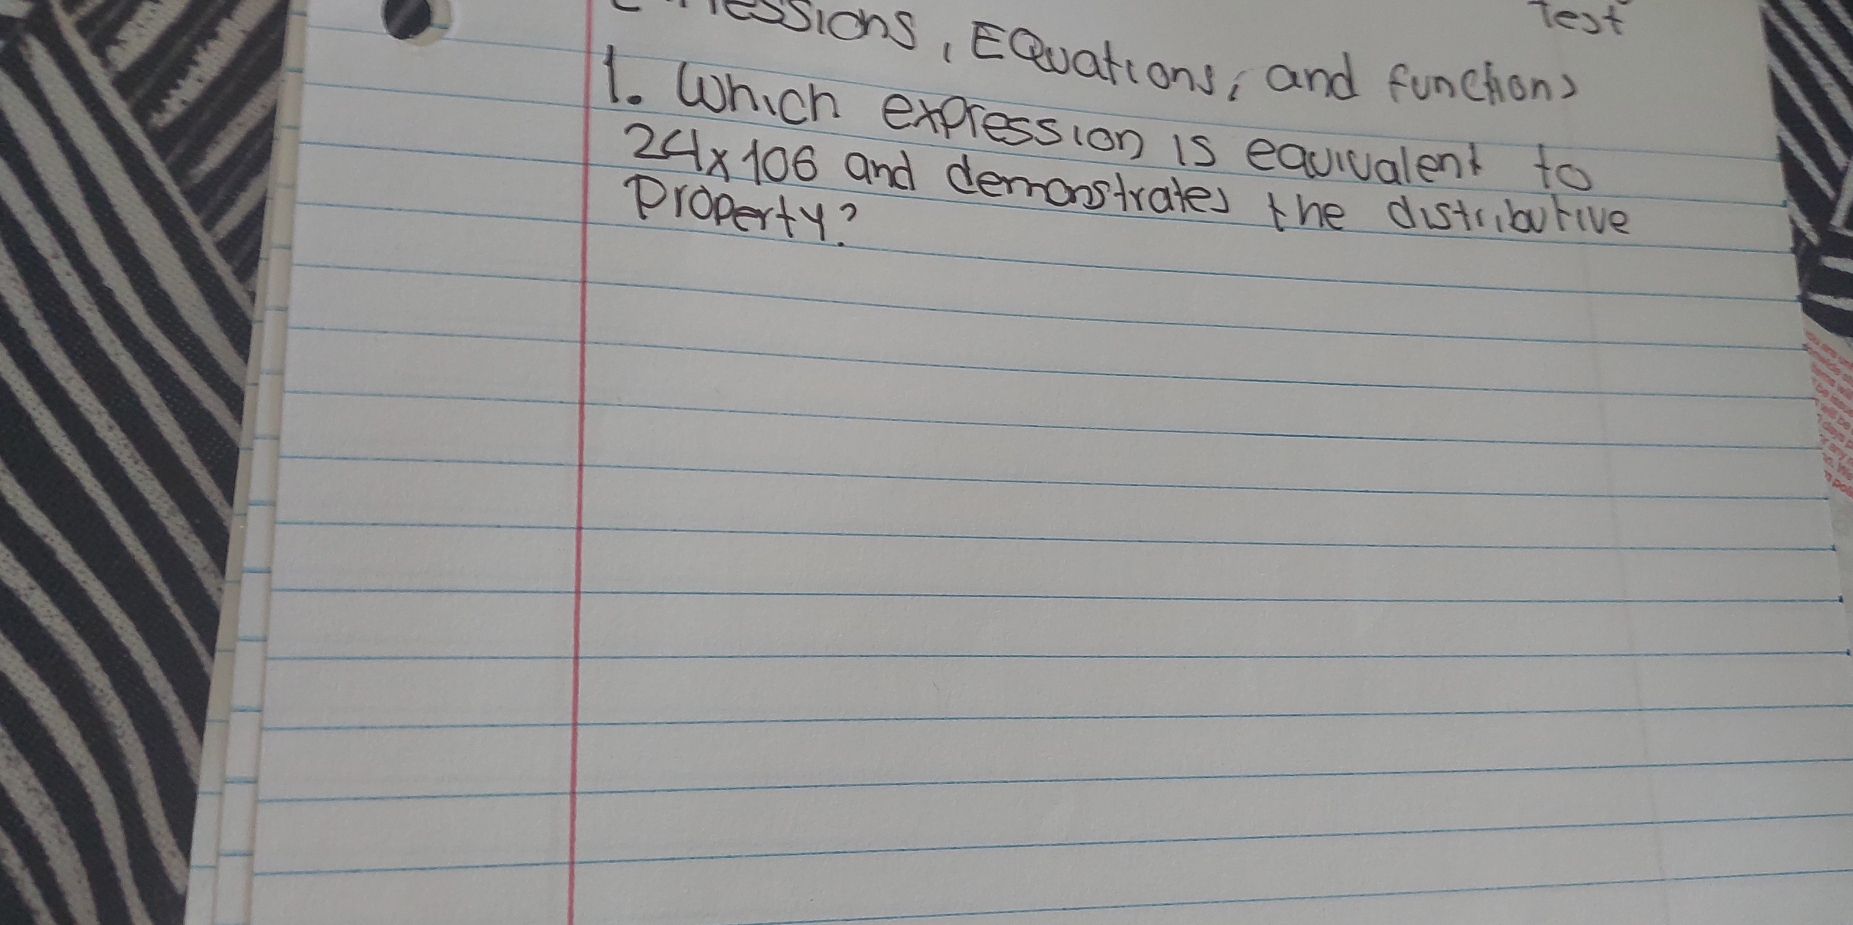 Test
Expressions, Equations, and functions
1. Which expression is equivalent to
24x106 and demonstrates the distributive
Property?